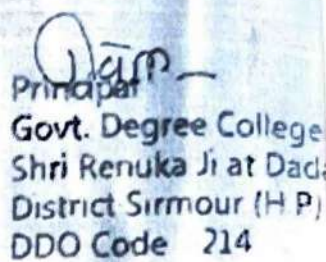 Principal
Govt. Degree College
Shri Renuka Ji at Dada
District Sirmour (H P)
DDO Code 214